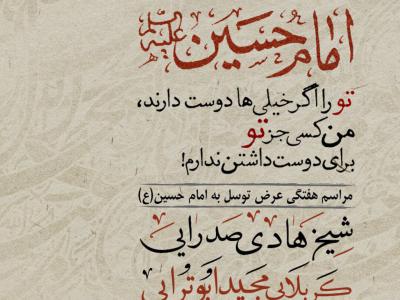 امام حسین علیه السلام
تو را اگر خیلی‌ها دوست دارند،
من کسی جز تو
برای دوست داشتن ندارم!
مراسم هفتگی عرض توسل به امام حسین(ع)
شیخ هادی صدرایی
کربلایی مجید ابوترابی